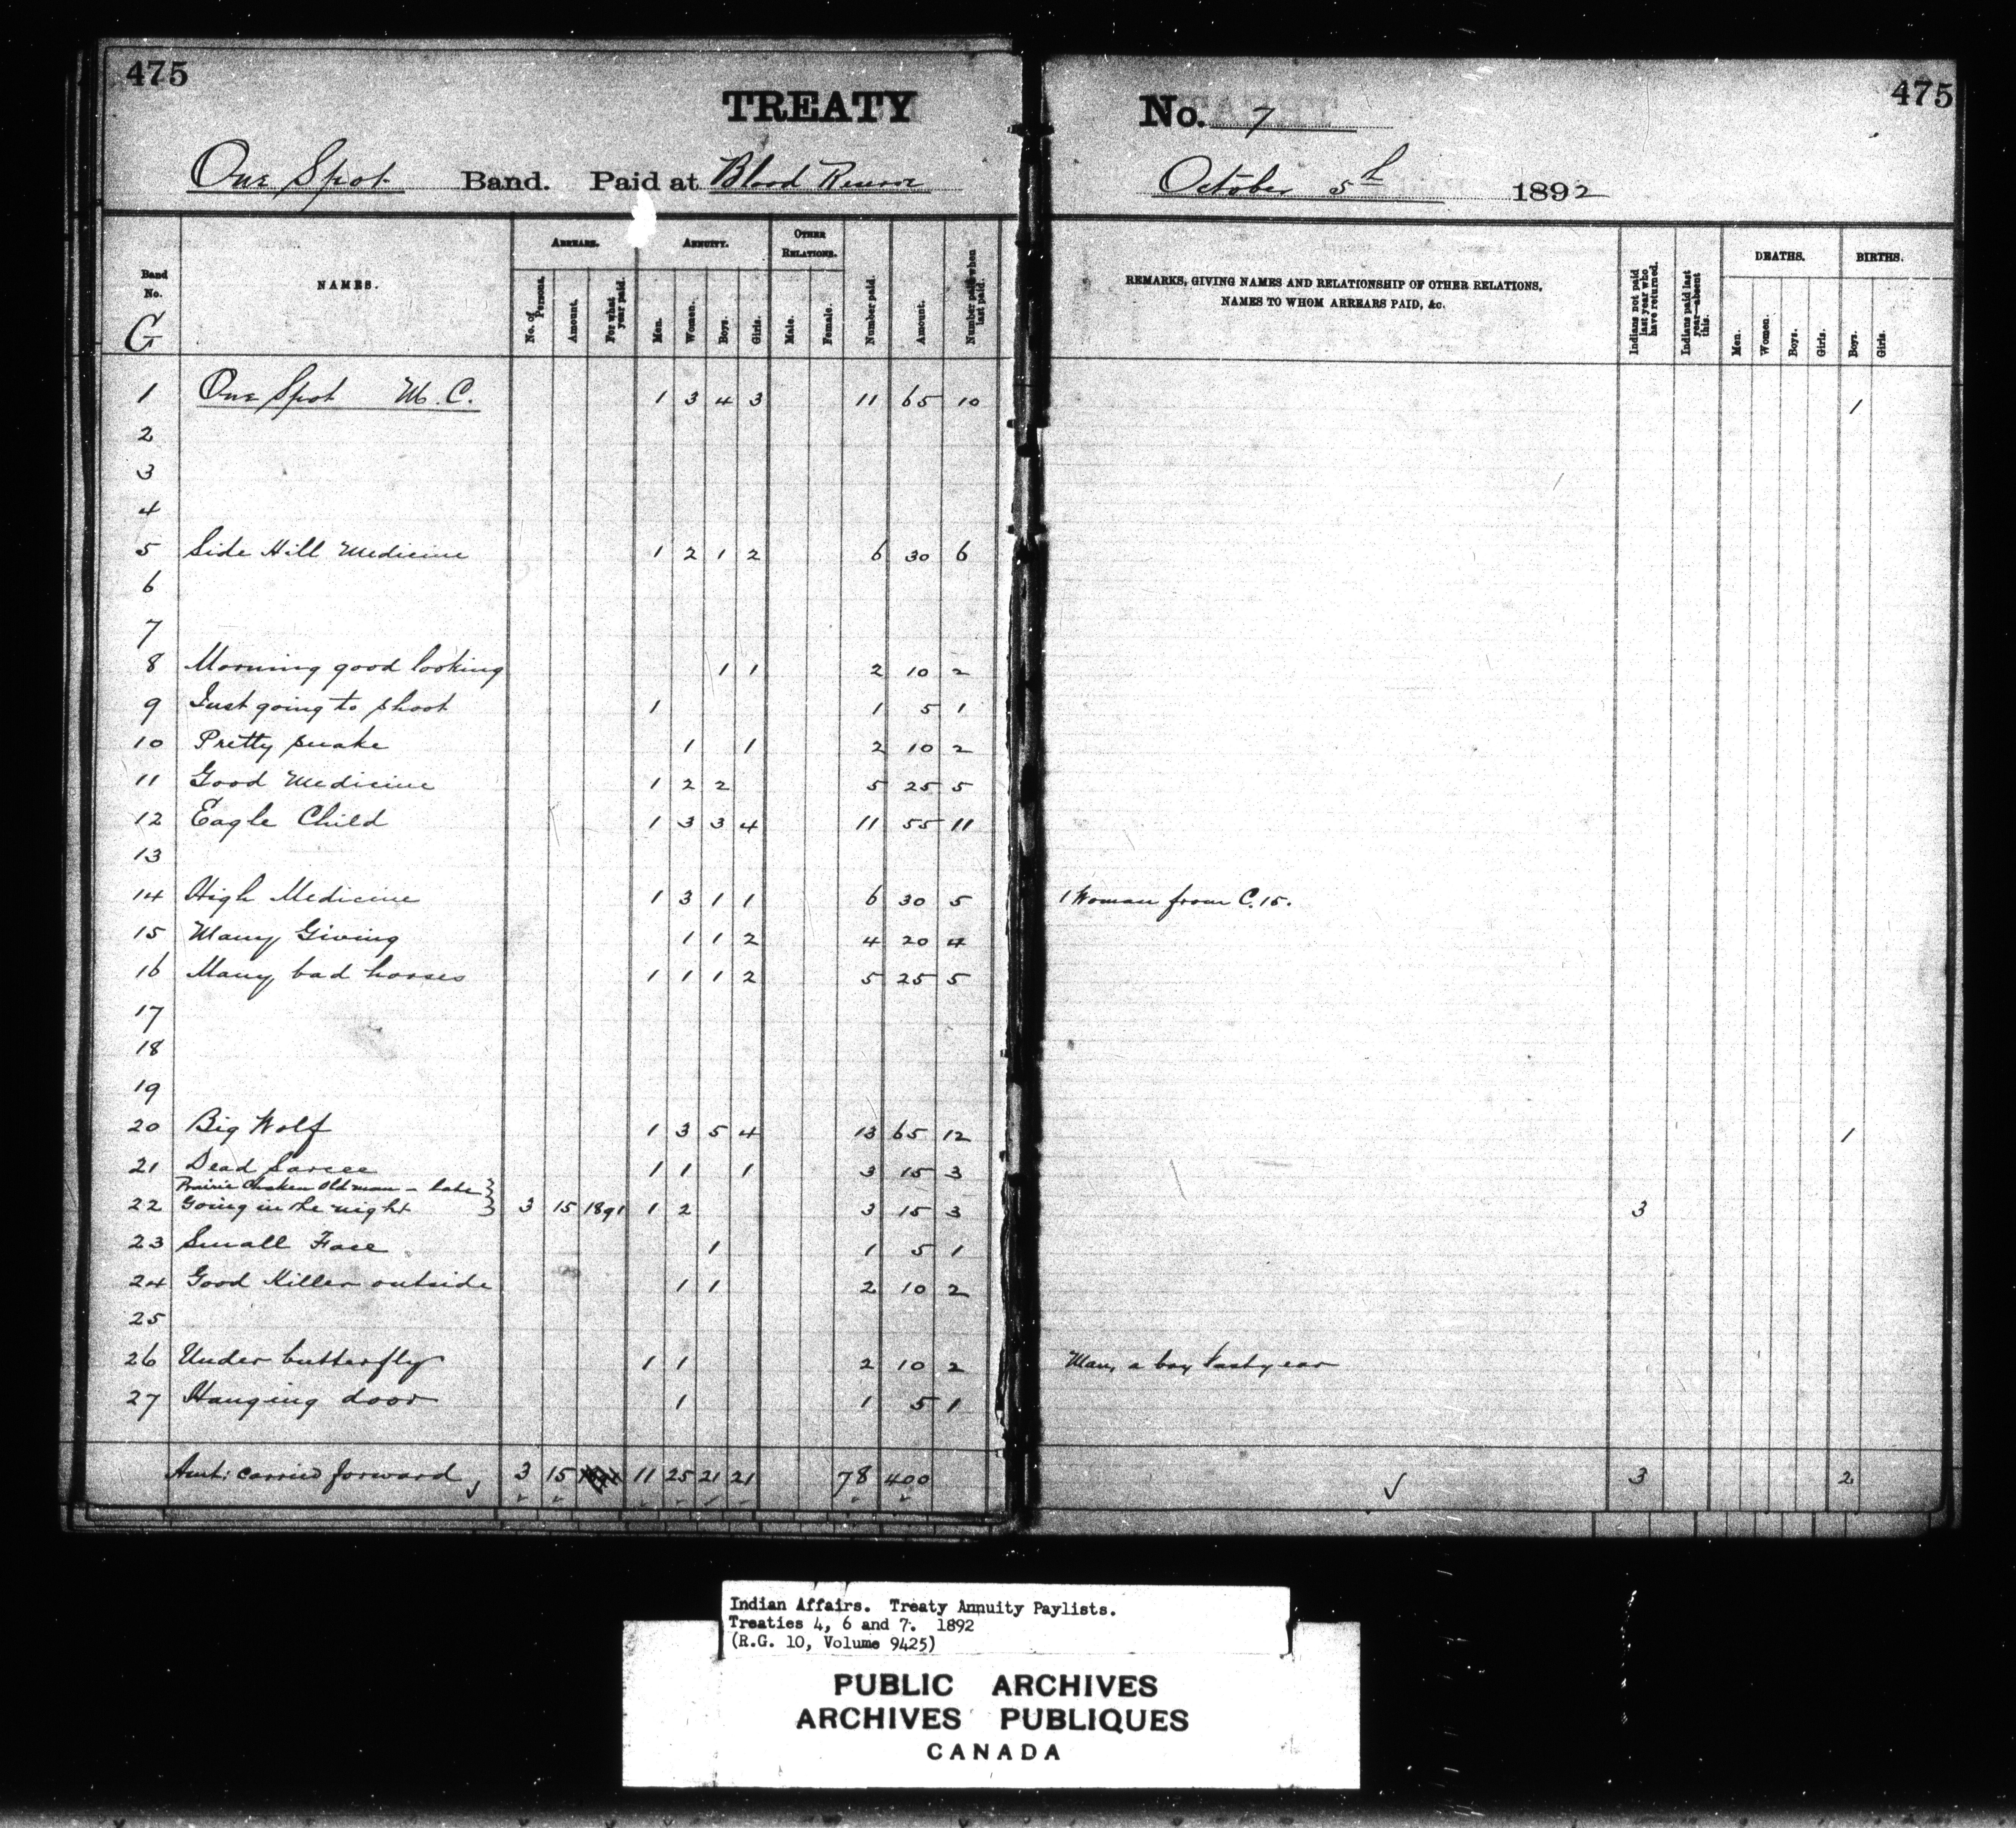 475 475
TREATY No. 7
One Spot Band. Paid at Blood Reserve October 5th 1892
Band No. G NAMES. ARREARS. No. of Persons. Amount. For what year paid. ANNUITY. Men. Women. Boys. Girls. OTHER RELATIONS. Male. Female. Number paid. Amount. Number paid when last paid. REMARKS, GIVING NAMES AND RELATIONSHIP OF OTHER RELATIONS, NAMES TO WHOM ARREARS PAID, &c. Indians not paid last year who have returned. Indians paid last year—absent this. DEATHS. Men. Women. Boys. Girls. BIRTHS. Boys. Girls.
1 One Spot M.C. 1 3 4 3 11 65 10 1
2
3
4
5 Side Hill Medicine 1 2 1 2 6 30 6
6
7
8 Morning good looking 1 1 2 10 2
9 Just going to shoot 1 1 5 1
10 Pretty snake 1 1 2 10 2
11 Good Medicine 1 2 2 5 25 5
12 Eagle Child 1 3 3 4 11 55 11
13
14 High Medicine 1 3 1 1 6 30 5 1 Woman from C.15.
15 Many Giving 1 1 2 4 20 4
16 Many bad horses 1 1 1 2 5 25 5
17
18
19
20 Big Wolf 1 3 5 4 13 65 12 1
21 Dead Sarcee 1 1 1 3 15 3
Prairie Chicken Old man - late
22 Going in the night 3 15 1891 1 2 3 15 3 3
23 Small Face 1 1 5 1
24 Good Killer outside 1 1 2 10 2
25
26 Under butterfly 1 1 2 10 2 Man, a boy last year
27 Hanging door 1 1 5 1
Amt: carried forward 3 15 11 25 21 21 78 400 3 2
Indian Affairs. Treaty Annuity Paylists.
Treaties 4, 6 and 7. 1892
(R.G. 10, Volume 9425)
PUBLIC ARCHIVES
ARCHIVES PUBLIQUES
CANADA